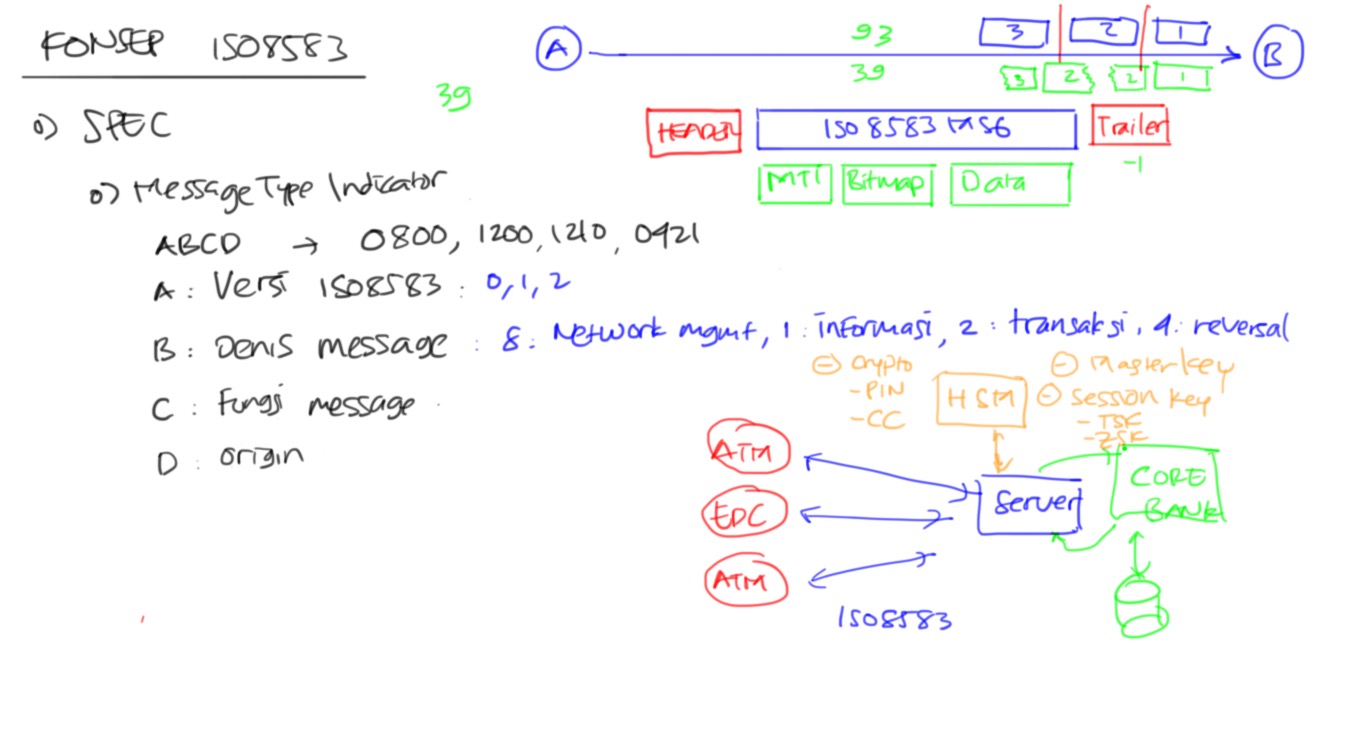 KONSEP ISO8583
39
o) SPEC
o) Message Type Indicator
ABCD → 0800, 1200, 1210, 0421
A : Versi ISO8583 : 0, 1, 2
B : Jenis message : 8 : Network mgmt, 1 : informasi, 2 : transaksi, 4 : reversal
C : Fungsi message
D : origin
A
93
3
2
1
B
39
3
2
2
1
HEADER
ISO 8583 MSG
Trailer
-1
MTI
Bitmap
Data
Crypto
- PIN
- CC
HSM
Master key
Session key
- TSK
- ZSK
ATM
EDC
ATM
Server
CORE
BANK
ISO8583